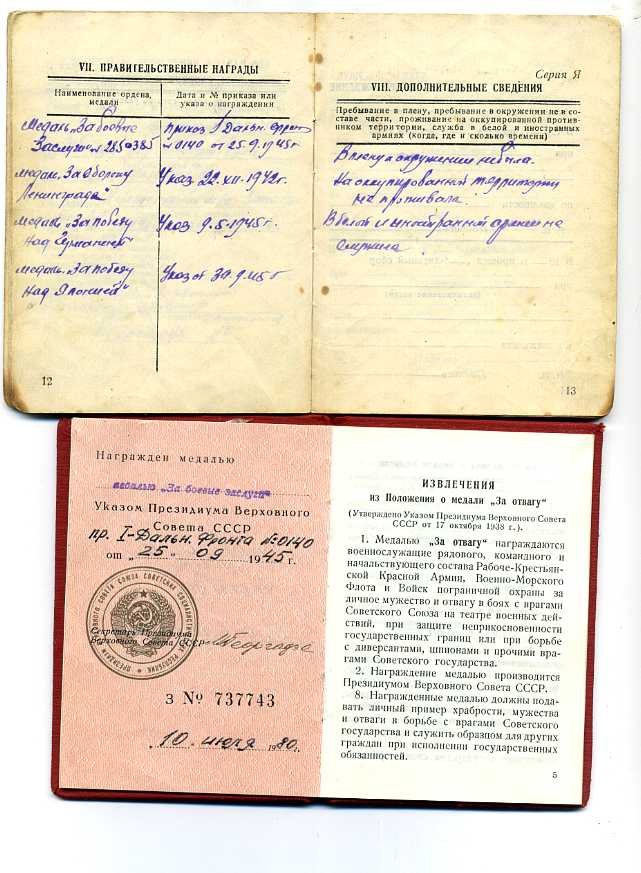 VII. ПРАВИТЕЛЬСТВЕННЫЕ НАГРАДЫ
Наименование ордена, медали
Дата и № приказа или указа о награждении
Медаль „За боевые
Заслуги" №
приказ 1 Дальн. фронт
№ 0140 от 25.9.1945г
медаль „За оборону
Ленинграда"
Указ 22.XII-1942г.
медаль „За победу
над Германией"
Указ 9.5-1945г.
медаль „За победу
над Японией"
Указ от 30.9.45г
12
Серия Я
VIII. ДОПОЛНИТЕЛЬНЫЕ СВЕДЕНИЯ
Пребывание в плену, пребывание в окружении не в со-
ставе части, проживание на оккупированной против-
ником территории, служба в белой и иностранных
армиях (когда, где и сколько времени)
В плену и окружении не была.
На оккупированной территории
не проживала.
В белой и иностранной армии не
служила.
13
Награжден медалью
медалью „За боевые заслуги"
Указом Президиума Верховного
Совета СССР
пр. I-Дальн. Фронта №0140
от „25" 09 1945 г.
ПРЕЗИДИУМ ВЕРХОВНОГО СОВЕТА СОЮЗА СОВЕТСКИХ СОЦИАЛИСТИЧЕСКИХ РЕСПУБЛИК
Секретарь Президиума
Верховного Совета СССР
З № 737743
„10" июля 1980г.
ИЗВЛЕЧЕНИЯ
из Положения о медали „За отвагу"
(Утверждено Указом Президиума Верховного Совета
СССР от 17 октября 1938 г.).
1. Медалью „За отвагу" награждаются
военнослужащие рядового, командного и
начальствующего состава Рабоче-Крестьян-
ской Красной Армии, Военно-Морского
Флота и Войск пограничной охраны за
личное мужество и отвагу в боях с врагами
Советского Союза на театре военных дей-
ствий, при защите неприкосновенности
государственных границ или при борьбе
с диверсантами, шпионами и прочими вра-
гами Советского государства.
2. Награждение медалью производится
Президиумом Верховного Совета СССР.
8. Награжденные медалью должны пода-
вать личный пример храбрости, мужества
и отваги в борьбе с врагами Советского
государства и служить образцом для других
граждан при исполнении государственных
обязанностей.
5